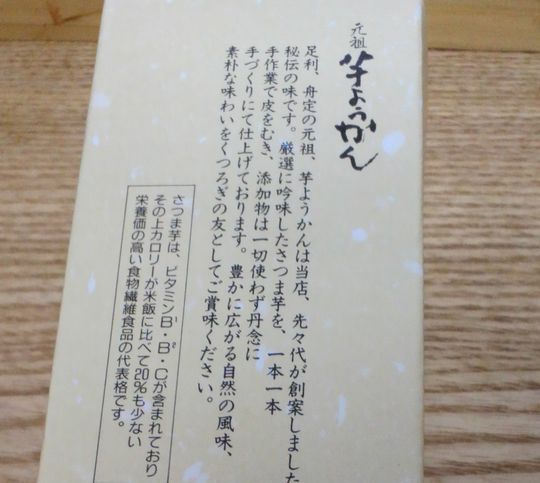 元祖
芋ようかん
足利、舟定の元祖、芋ようかんは当店、先々代が創案しました
秘伝の味です。厳選に吟味したさつま芋を、一本一本
手作業で皮をむき、添加物は一切使わず丹念に
手づくりにて仕上げております。豊かに広がる自然の風味、
素朴な味わいをくつろぎの友としてご賞味ください。
さつま芋は、ビタミンB¹・B²・Cが含まれており
その上カロリーが米飯に比べて20%も少ない
栄養価の高い食物繊維食品の代表格です。